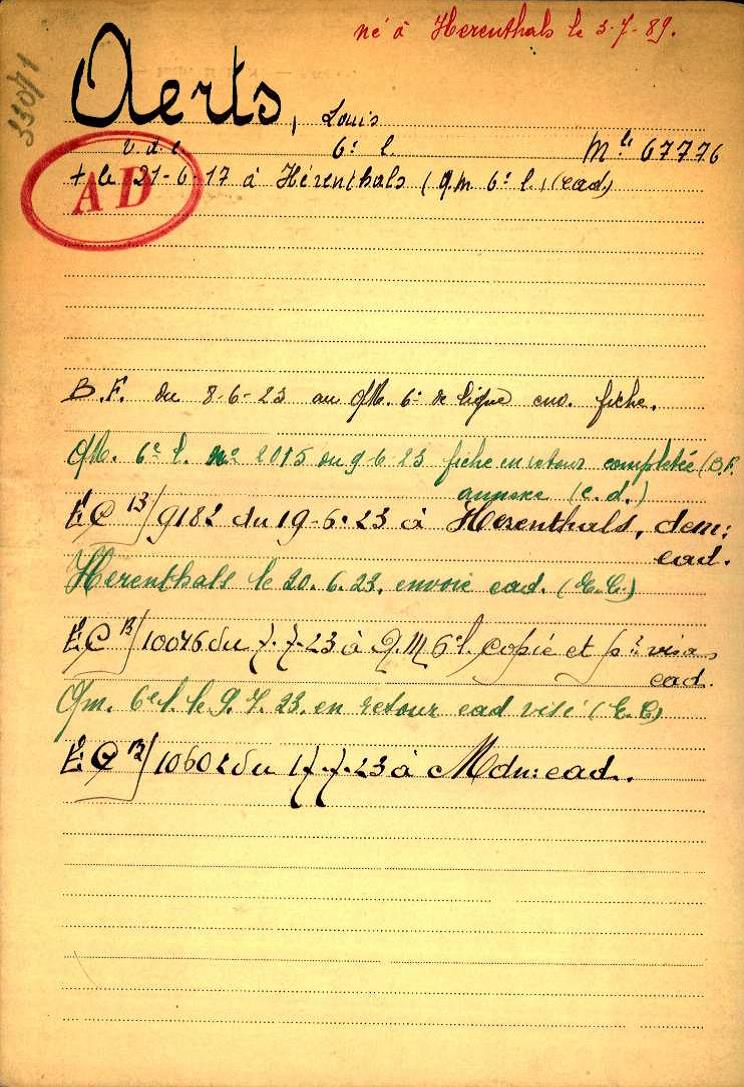 né à Herenthals le 3-7-89.
33071
Aerts, Louis
v.d.c 6e l. Mle 67776
+ le 21-6-17 à Hérenthals (q.m 6e l.) (ead)
AD
B.F. du 8-6-23 au QM. 6e de ligne env. fiche.
QM. 6e l. no 2015 du 9-6-23 fiche en retour completée (B.F.
annexe (c.d.)
EC 13/9182 du 19-6-23 à Herenthals, dem:
ead.
Herenthals le 20.6.23. envoie ead. (E.C.)
EC 13/10046 du 7-7-23 à Q.M 6e l. copié et pr visa
ead.
Qm. 6e l. le 9.7.23. en retour ead visé (E.C)
EC 13/10602 du 17-7-23 à Mdn: ead.